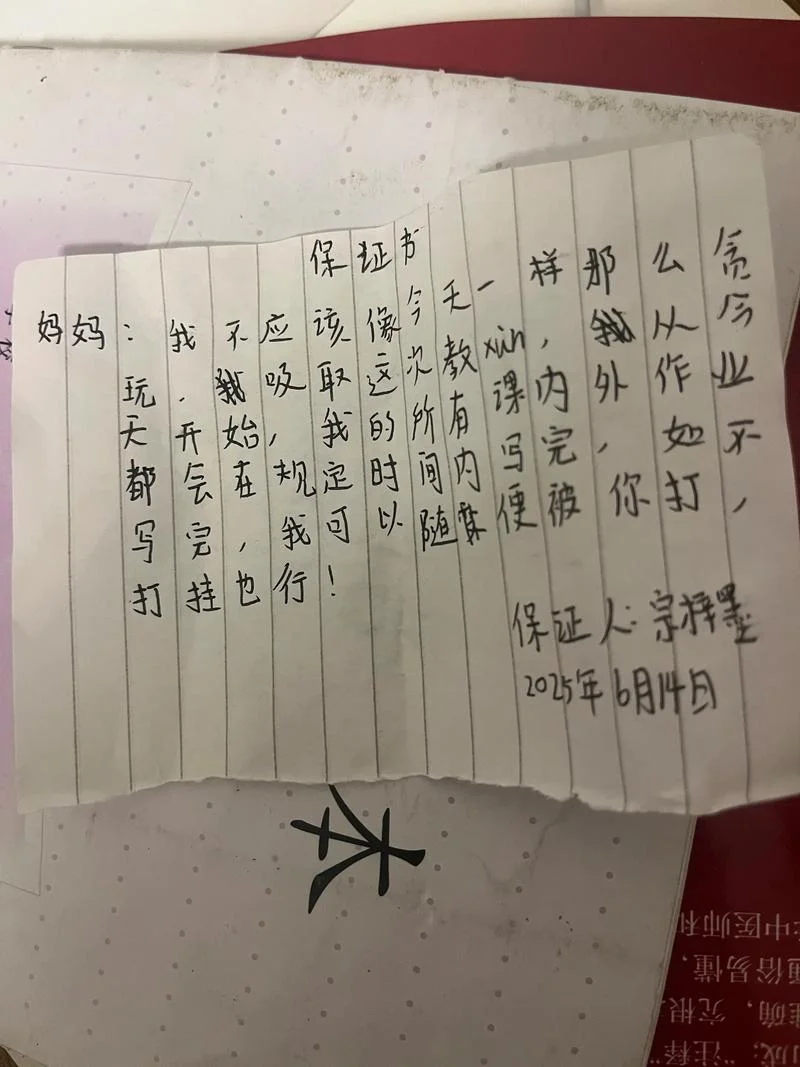 保证书
妈妈：我不应该像今天一样那么贪
玩．我吸取这次教xùn，我从今
天开始，我的所有课内外作业
都会在规定时间内写完，如不
写完，我可以随便被你打，
打挂也行！
保证人：宗梓墨
2025年6月14日
本
中医师和
俗易懂，
确，究根
成；“注释”